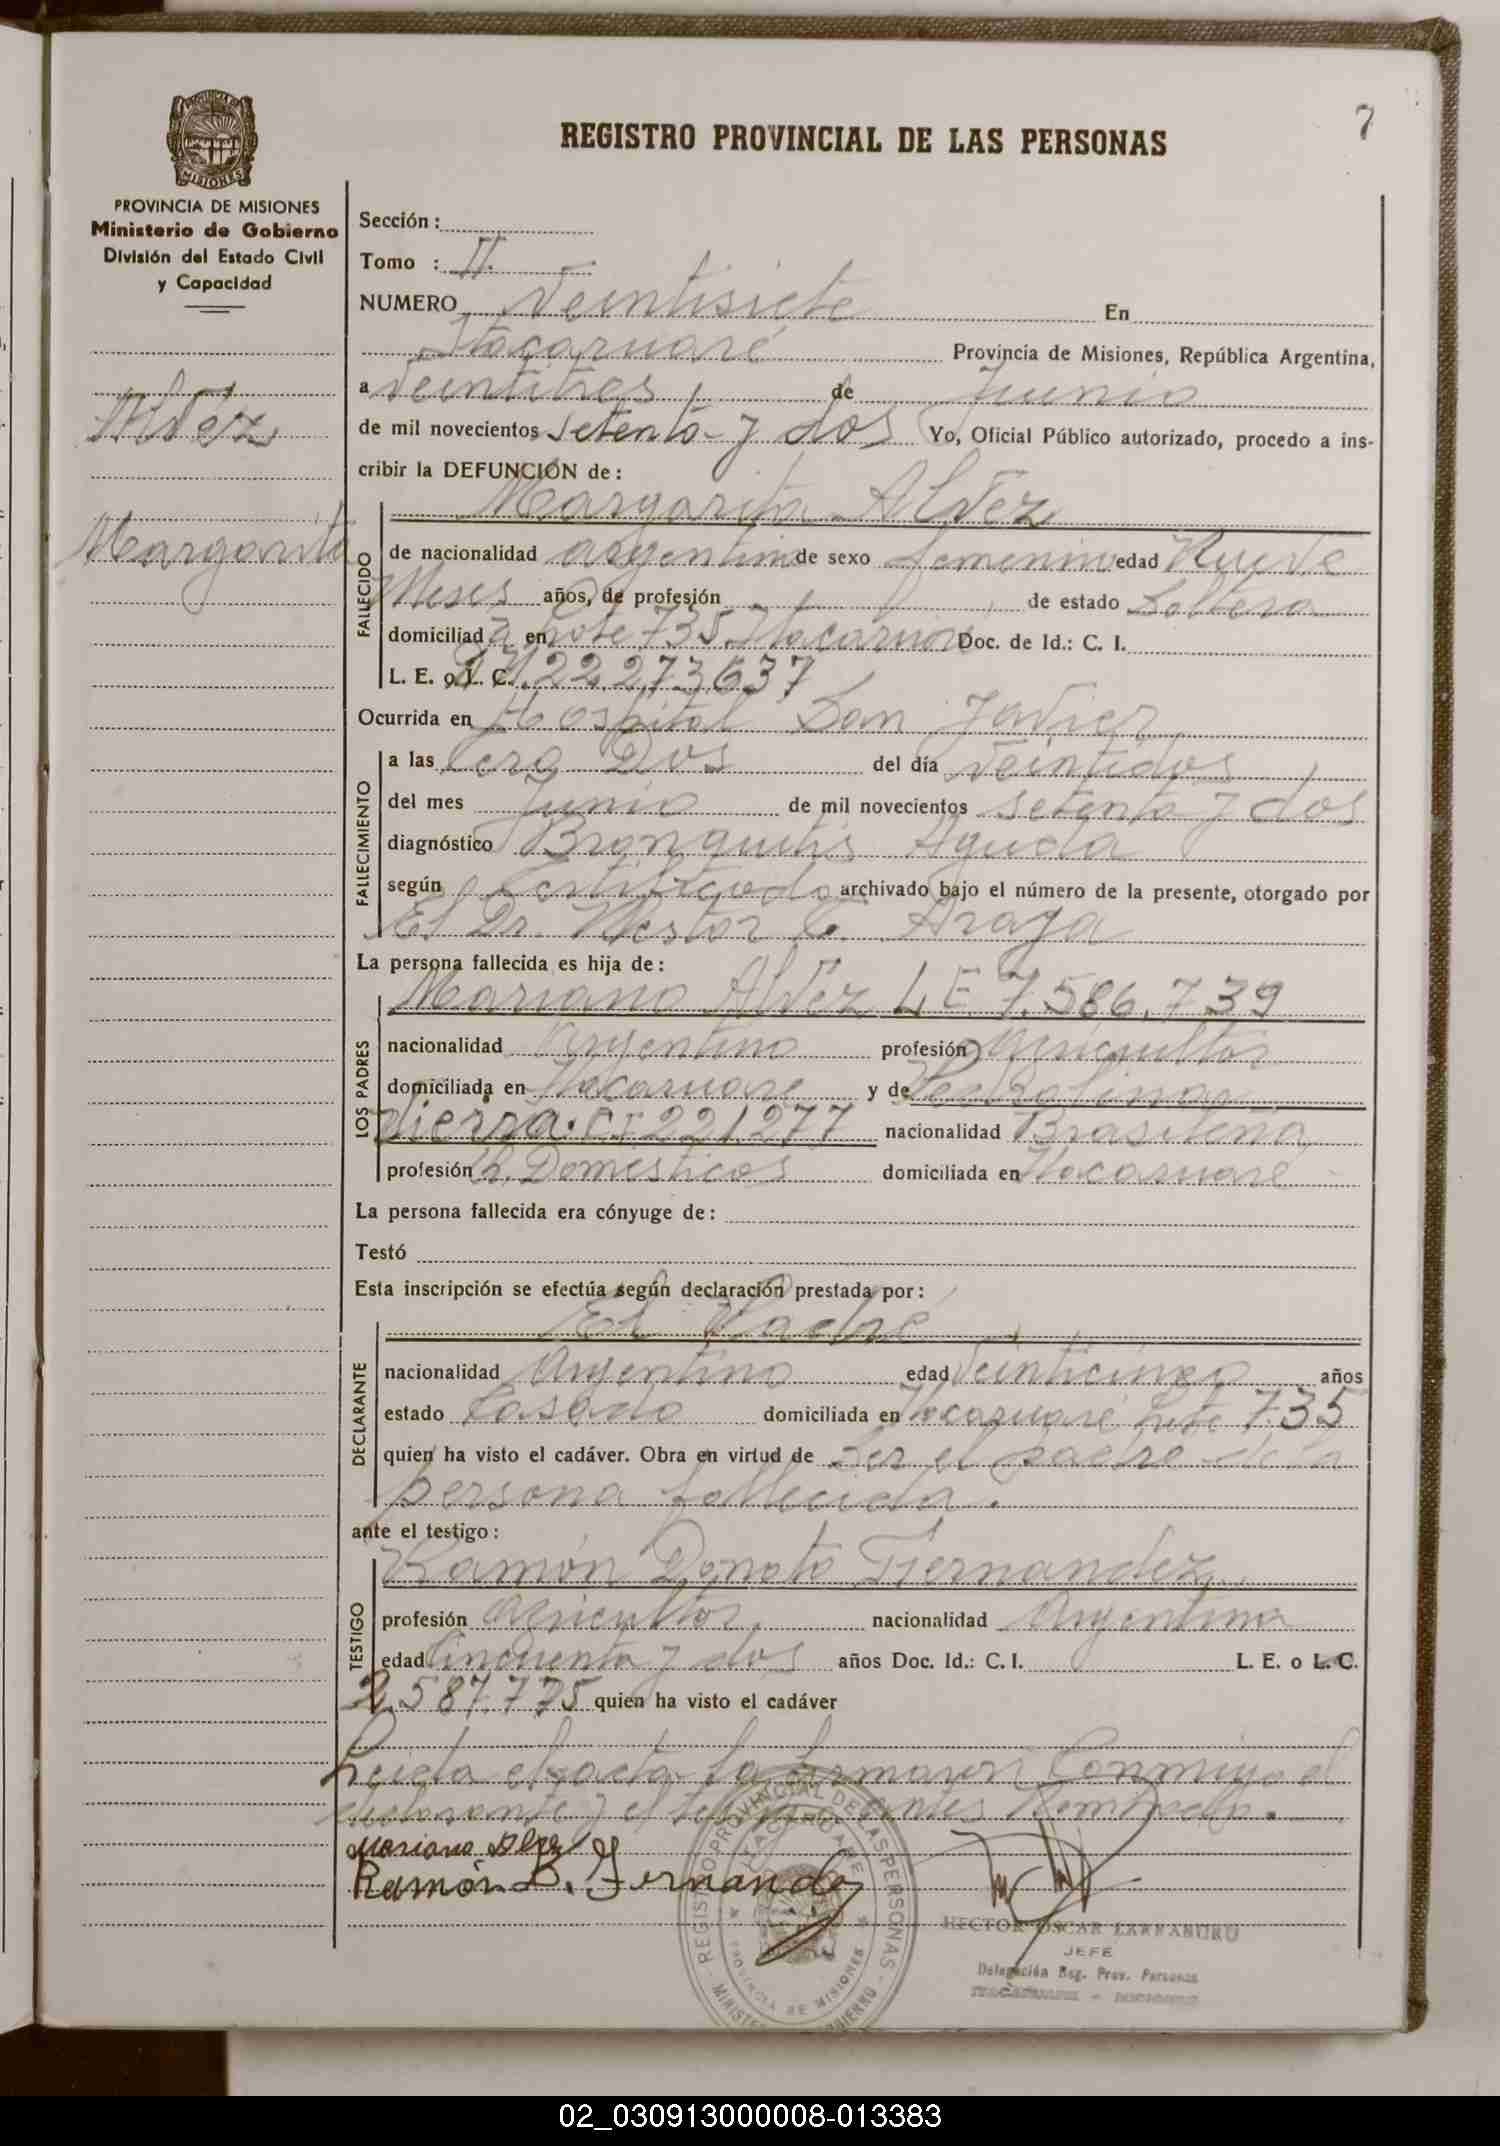 7
REGISTRO PROVINCIAL DE LAS PERSONAS
PROVINCIA DE MISIONES
Ministerio de Gobierno
División del Estado Civil
y Capacidad
Alvez
Margarita
Sección:
Tomo : II.
NUMERO Veintisiete En
Itacaruaré Provincia de Misiones, República Argentina,
a Veintitres de Junio
de mil novecientos setenta y dos Yo, Oficial Público autorizado, procedo a ins-
cribir la DEFUNCIÓN de:
Margarita Alvez
FALLECIDO
de nacionalidad argentina de sexo femenino edad Nueve
Meses años, de profesión de estado Soltera
domiciliada en Lote 735 Itacaruaré Doc. de Id.: C. I.
L. E. o L. C. 22.273.637
Ocurrida en Hospital San Javier
FALLECIMIENTO
a las cero Dos del día Veintidos
del mes Junio de mil novecientos setenta y dos
diagnóstico Bronquitis Aguda
según Certificado archivado bajo el número de la presente, otorgado por
El Dr. Nestor C. Araya
La persona fallecida es hija de:
Mariano Alvez L E 7.586.739
LOS PADRES
nacionalidad Argentino profesión Agricultor
domiciliada en Itacaruaré y de
Vierra. C I 221277 nacionalidad Brasileña
profesión Q. Domesticos domiciliada en Itacaruaré
La persona fallecida era cónyuge de:
Testó
Esta inscripción se efectúa según declaración prestada por:
El Padre
DECLARANTE
nacionalidad Argentino edad Veinticinco años
estado Casado domiciliada en Itacaruaré Lote 735
quien ha visto el cadáver. Obra en virtud de Ser el padre de la
persona fallecida.
ante el testigo:
Ramón Donato Fernandez
TESTIGO
profesión Agricultor nacionalidad Argentina
edad Cincuenta y dos años Doc. Id.: C. I. L. E. o L. C.
2.587.775 quien ha visto el cadáver
Leida el acta la firman Conmigo el
declarante y el testigo antes Nombrado.
Mariano Alvez
Ramón D. Fernandez
REGISTRO PROVINCIAL DE LAS PERSONAS
ITACARUARE
PROVINCIA DE MISIONES
HECTOR OSCAR LARRABURU
JEFE
Delegación Reg. Prov. Personas
ITACARUARE - MISIONES
02_030913000008-013383